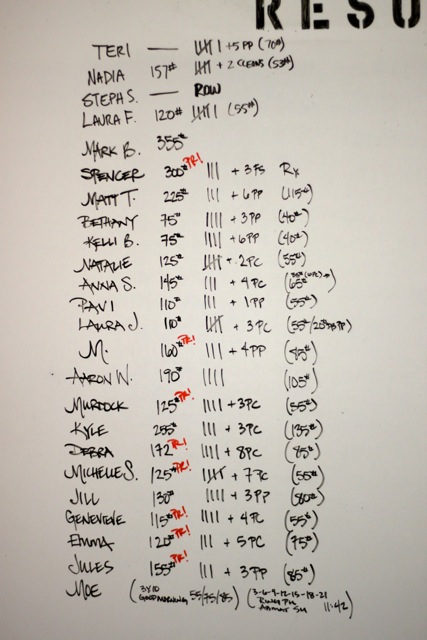 RESU
TERI — |||| | +5PP (70#)
NADIA 157# |||| + 2 CLEANS (53#)
STEPH S. — ROW
LAURA F. 120# |||| | (55#)
MARK B. 355#
SPENCER 300# PR! ||| + 3FS Rx
MATT T. 225# ||| + 6PP (115#)
BETHANY 75# |||| + 3PP (40#)
KELLI B. 75# |||| +6PP (40#)
NATALIE 125# |||| + 2PC (55#)
ANNA S. 145# ||| + 4PC (65#)
PAVI 110# ||| + 1PP (55#)
LAURA J. 110# |||| + 3PC (55#/20#DBPP)
M. 160# PR! ||| + 4PP (85#)
AARON W. 190# |||| (105#)
MURDOCK 125# PR! |||| +3PC (55#)
KYLE 255# ||| + 3PC (135#)
DEBRA 172 PR! |||| + 8PC (85#)
MICHELLE S. 125# PR! |||| + 7PC (55#)
JILL 130# |||| + 3PP (80#)
GENEVIEVE 115# PR! |||| + 4PC (55#)
EMMA 120# PR! ||| + 5PC (75#)
JULES 155# PR! ||| + 3PP (85#)
MOE (3X10 GOOD MORNING 55/75/85) (3-6-9-12-15-18-21 RING PU ABMAT SU 11:42)